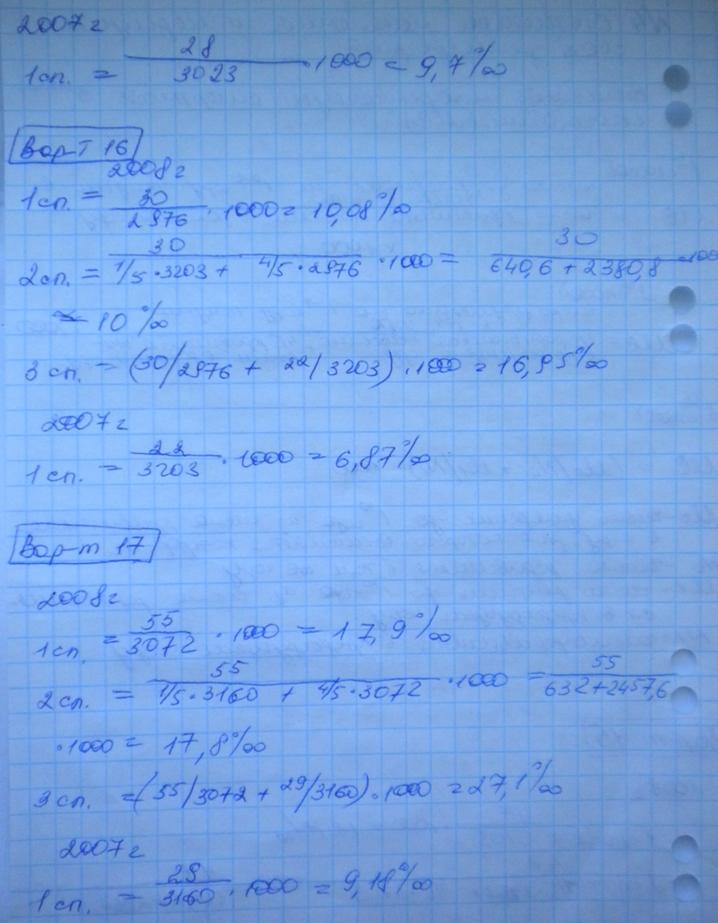 2007 г
1сп. = 28/3023 · 1000 = 9,7‰
Вар-т 16
2008 г
1сп. = 30/2976 · 1000 = 10,08‰
2сп. = 30/(1/5 · 3203 + 4/5 · 2976) · 1000 = 30/(640,6 + 2380,8) · 100
≈ 10‰
3 сп. = (30/2976 + 22/3203) · 1000 = 16,95‰
2007 г
1 сп. = 22/3203 · 1000 = 6,87‰
Вар-т 17
2008 г
1 сп. = 55/3072 · 1000 = 17,9‰
2 сп. = 55/(1/5 · 3160 + 4/5 · 3072) · 1000 = 55/(632 + 2457,6)
· 1000 = 17,8‰
3 сп. = (55/3072 + 29/3160) · 1000 = 27,1‰
2007 г
1 сп. = 29/3160 · 1000 = 9,18‰